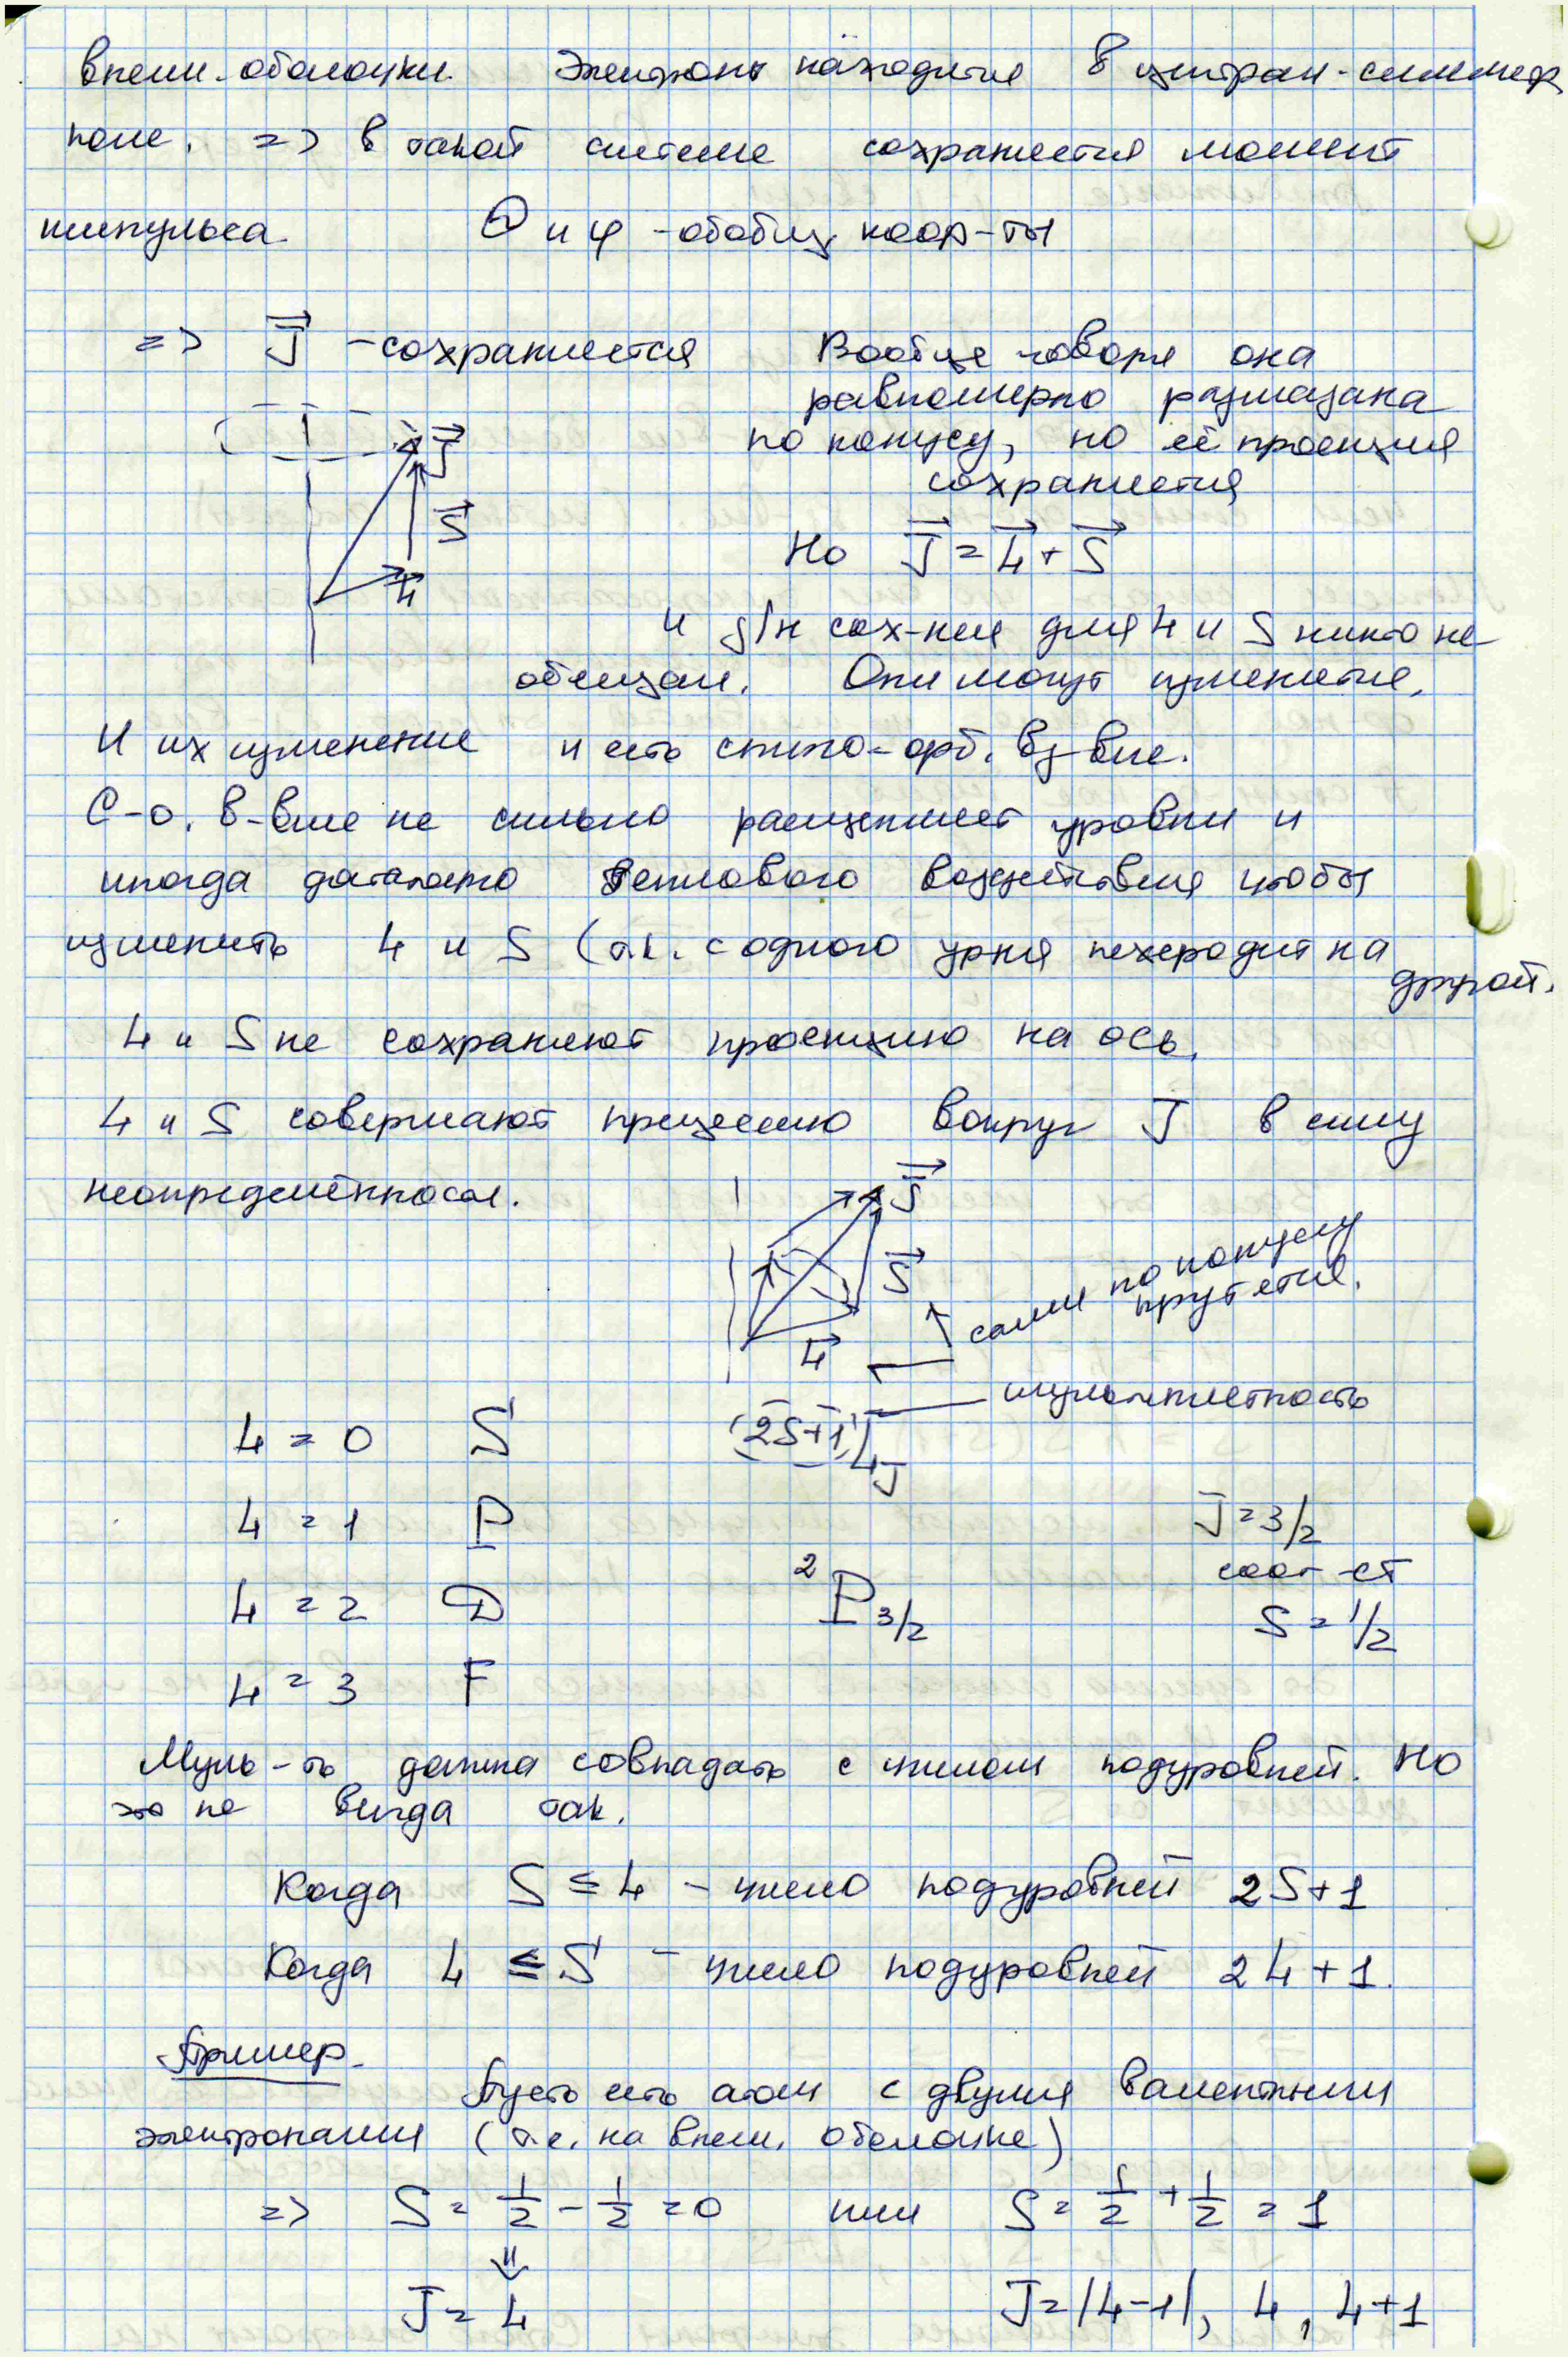 внешн. оболочки. Электроны находятся в централ-симметр
поле. => в такой системе сохраняется момент
импульса Θ и φ - обобщ. коор-ты
=> J⃗ - сохраняется
Вообще говоря она
равномерно размазана
по конусу, но её проекция
сохраняется
J⃗
S⃗
L⃗
Но J⃗ = L⃗ + S⃗
и з/н сох-ния для L и S никто не
обещал. Они могут изменяться.
И их изменение и есть спино-орб. вз-вие.
С-о. в-вие не сильно расщепляет уровни и
иногда достаточно теплового воздействия чтобы
изменить L и S (т.к. с одного уря переходит на
другой.
L и S не сохраняют проекцию на ось.
L и S совершают прецессию вокруг J в силу
неопределённости.
J⃗
S⃗
L⃗
сами по конусу
крутятся.
мультиплетность
(2S+1)LJ
L = 0 S
L = 1 P
L = 2 D
L = 3 F
²P3/2
J = 3/2
соот-ст
S = 1/2
Муль-ть должна совпадать с числом подуровней. Но
это не всегда так.
Когда S ≤ L - число подуровней 2S+1
Когда L ≤ S - число подуровней 2L+1.
Пример.
Пусть есть атом с двумя валентными
электронами (т.е. на внеш. оболочке)
=> S = 1/2 - 1/2 = 0 или S = 1/2 + 1/2 = 1
⇓
J = L J = |L-1|, L, L+1